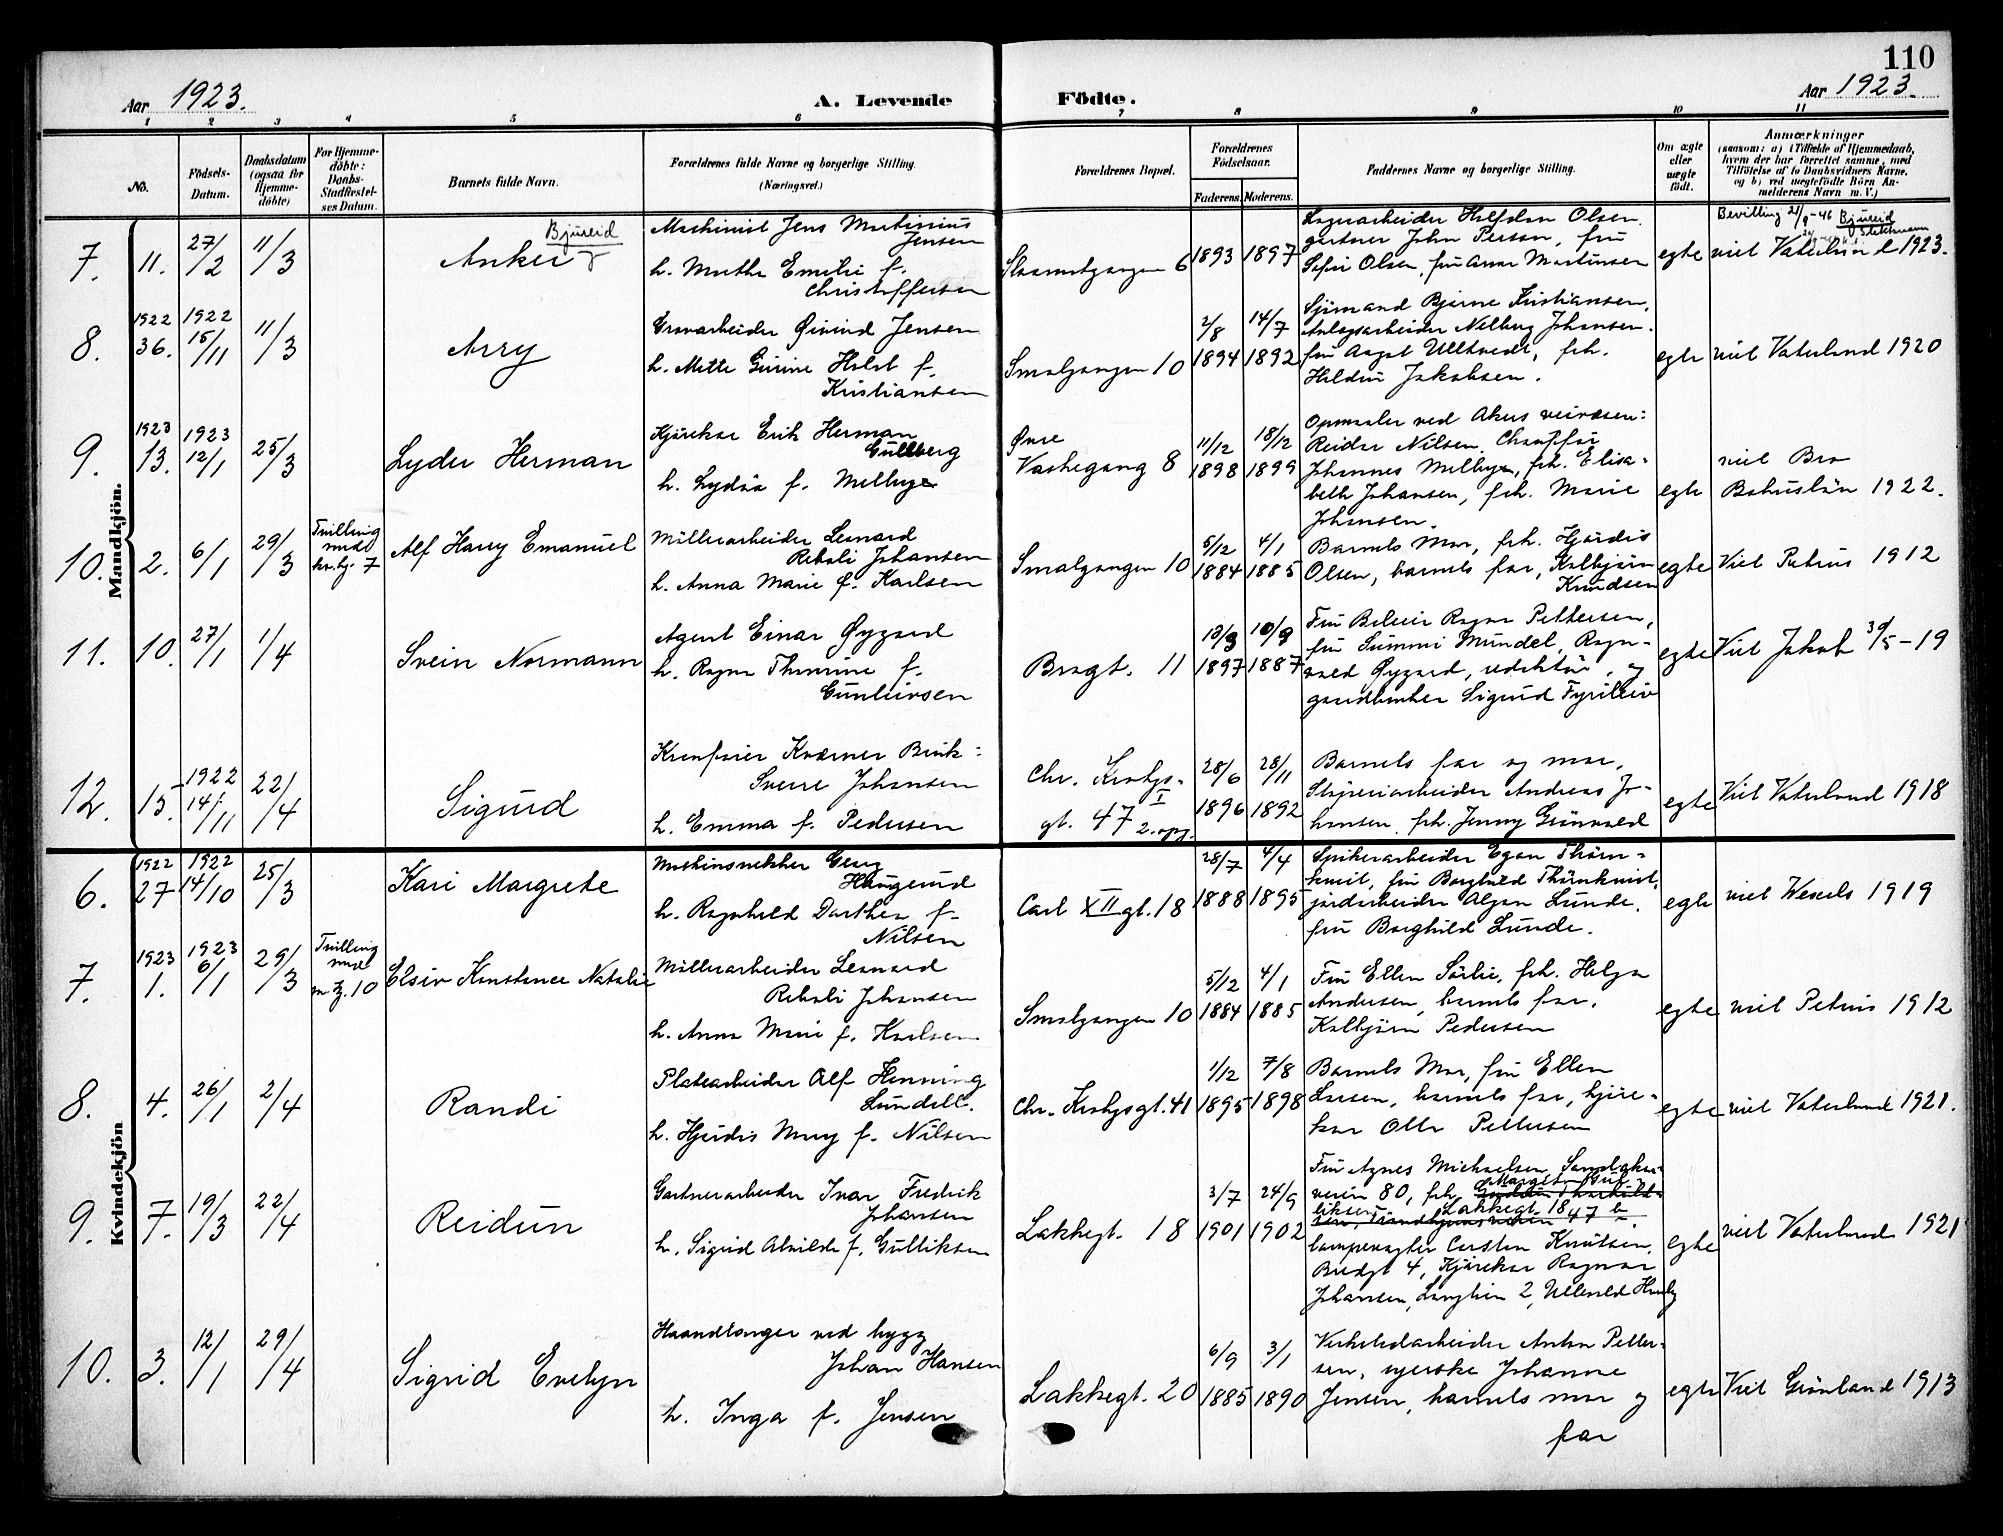 110
Aar 1923.
A. Levende Födte.
Aar 1923.
1 2 3 4 5 6 7 8 9 10 11
No.
Födsels-Datum.
Daabsdatum (ogsaa for Hjemme-döbte)
For Hjemme-döbte: Daabs-Stadfæstel-ses Datum.
Barnets fulde Navn.
Forældrenes fulde Navne og borgerlige Stilling.
(Næringsvei.)
Forældrenes Bopæl.
Forældrenes Födselsaar.
Faderens. Moderens.
Faddernes Navne og borgerlige Stilling.
Om ægte eller uægte födt.
Anmærkninger
(saasom: a) i Tilfælde af Hjemmedaab, hvem der har forrettet samme, med Tilföielse af to Daabsvidners Navne, og b) ved uægtefödte Börn An-melderens Navn m. V.)
Mandkjön.
7. 11. 27/2 11/3
Bjureid
Anker
Maskinist Jens Martinius
Jensen
h. Marthe Emilie f.
Christoffersen
6 1893 1897
Lagerarbeider Halfdan Olsen
gartner John Person, fru
Sofie Olsen, fru Anna Martinsen
egte
Bevilling 21/9-46 Bjureid
viet Vaterland 1923.
8. 1922 36. 1922 15/11 11/3
Arry
Gravarbeider Øivind Jensen
h. Mette Gurine Holst f.
Kristiansen
Smalgangen 10
2/8 1894 14/7 1892
Sjömand Bjarne Kristiansen,
Anlægsarbeider Johansen.
fru Aagot Ulltvedt, frk.
Jakobsen.
egte
viet Vaterland 1920
9. 1923 13. 1923 12/1 25/3
Lyder Herman
Kjörekar Erik Herman
Gullberg
h. Lydia f. Melbye
Øvre
Vaskegang 8
11/12 1898 18/12 1899
Opmaaler ved Akers veivæsen:
Reidar Nilsen, Chauffør
Johannes Melbye, frk. Elisa-
beth Johansen, frk. Marie
Johansen.
egte
viet Bro
Bohuslän 1922.
10. 2. 6/1 29/3
Tvilling
med
kv.kj. 7
Alf Harry Emanuel
Möllerarbeider Leonard
Rikoli Johansen
h. Anna Marie f. Karlsen
Smalgangen 10
5/12 1884 4/1 1885
Barnets Mor, frk. Hjördis
Olsen, barnets far, Kolbjörn
Knudsen
egte
Viet Petrus 1912
11. 10. 27/1 1/4
Svein Normann
Agent Einar Øygard
h. Ragna Thomine f.
Gunleivsen
Brogt. 11
1897 1887
Fru Ragna Pettersen,
fru Mundel, Ragn-
vald Øygard, redaktör, og
gaardbruker Sigurd Fyrileiv
egte
Viet Jakob 30/5-19
12. 15. 1922 14/11 22/4
Sigurd
Kranfører Kværner Bruk:
Sverre Johansen
h. Emma f. Pedersen
Chr. Krohgs-
gt. 47 I
2. opg.
28/6 1896 28/11 1892
Barnets far og mor,
Sliperiarbeider Andreas Jo-
hansen, frk. Jenny Grönvold
egte
Viet Vaterland 1918
Kvindekjön
6. 1922 27 1922 14/10 25/3
Kari Margrete
Maskinsnekker Georg
Haugerud
h. Ragnhild Dorthea f.
Nilsen
Carl XII gt. 18
28/7 1888 4/4 1895
Spikerarbeider Egon Thörn-
kvist, fru Borghild Thörnkvist,
jordarbeider Aljon Lunde,
fru Borghild Lunde.
egte
viet Wexels 1919
7. 1923 1. 1923 6/1 29/3
Tvilling
med
m.kj. 10
Elsiv Konstance Natalie
Möllerarbeider Leonard
Rikoli Johansen
h. Anna Marie f. Karlsen
Smalgangen 10
5/12 1884 4/1 1885
Fru Ellen Sörlie, frk. Helga
Andersen, barnets far,
Kolbjörn Pedersen
egte
viet Petrus 1912
8. 4. 26/1 2/4
Randi
Platearbeider Alf Henning
Lundell.
h. Hjördis Mary f. Nilsen
Chr. Krohgsgt. 41
1/12 1895 7/8 1898
Barnets Mor, fru Ellen
Larsen, barnets far, kjöre-
kar Olla Pettersen
egte
viet Vaterland 1921.
9. 7. 19/3 22/4
Reidun
Gartnerarbeider Ivar Fredrik
Johansen
h. Sigrid Alvilde f. Gulliksen
Lakkegt. 18
3/7 1901 24/9 1902
Fru Agnes Michaelsen, Sandaker-
veien 80, frk. Margit Gul-
liksen, Lakkegt. 18
47 b
lampevagter Carsten Knutsen,
Bredgt 4, Kjörekar Ragnar
Johansen, Langlien 2, Ullevold Haveby
egte
viet Vaterland 1921
10. 3. 12/1 29/4
Sigrid Evelyn
Haandlanger ved bygg
Johan Hansen
h. Inga f. Jensen
Lakkegt. 20
6/9 1885 3/1 1890
Verkstedarbeider Anton Petter-
sen, syerske Johanne
Jensen, barnets mor og
far
egte
Viet Grönland 1913